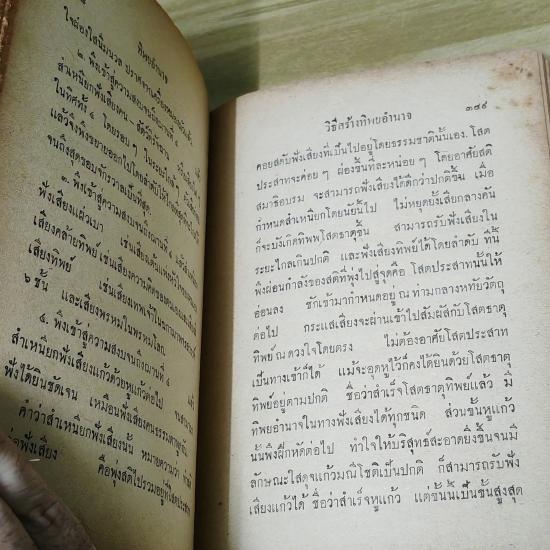 ทิพยอำนาจ
ใจผ่องใสนิ่มนวล ปราศจากเครื่อง
๒. พึงเข้าสู่ความสงบจนถึงฌานที่ ๔
สำเหนียกฟังเสียงคน สัตว์
ในทิศทั้ง ๔ โดยรอบ ๆ ในระยะใกล้ ๆ
แล้วจึงขยายออกไปโดยลำดับ
จนถึงสุดรอบจักรวาลเป็นที่สุด.
๓. พึงเข้าสู่ความสงบจนถึงฌานที่
ฟังเสียงแผ่วเบา เช่นเสียง
เสียงคล้ายทิพย์ เช่นเสียงความคิดของคน
เสียงทิพย์ เช่นเสียงเทพเจ้าในกามาพจรสวรรค์
๖ ชั้น และเสียงพรหมในพรหมโลก.
๔. พึงเข้าสู่ความสงบจนถึงฌานที่ ๔
สำเหนียกฟังเสียงแก้วด้วยหูแก้วต่อไป จน
ฟังได้ยินชัดเจน เหมือนฟังเสียงคนธรรมดา
คำว่าสำเหนียกฟังเสียงนั้น หมายความว่า
ฟังเสียง คือพุ่งสติไปรวมอยู่ที่โสตประสาท
วิธีสร้างทิพยอำนาจ ๓๔๙
คอยสดับฟังเสียงที่เป็นไปอยู่โดยธรรมชาตินั้นเอง. โสต
ประสาทจะค่อย ๆ ผ่องขึ้นทีละหน่อย ๆ โดยอาศัยสติ
สมาธิอบรม จะสามารถฟังเสียงได้ดีกว่าปกติขึ้น เมื่อ
กำหนดสำเหนียกโดยนัยนี้ไป ไม่หยุดยั้งเสียกลางคัน
ก็จะบังเกิดทิพพโสตธาตุขึ้น สามารถรับฟังเสียงใน
ระยะไกลเกินปกติ และฟังเสียงทิพย์ได้โดยลำดับ ทีนี้
พึงผ่อนกำลังของสติที่พุ่งไปสู่จุดคือ โสตประสาทนั้นให้
อ่อนลง ชักเข้ามากำหนดอยู่ ณ ท่ามกลางหทัยวัตถุ
ต่อไป กระแสเสียงจะผ่านเข้าไปสัมผัสกับโสตธาตุ
ทิพย์ ณ ดวงใจโดยตรง ไม่ต้องอาศัยโสตประสาท
เป็นทางเข้าก็ได้ แม้จะอุดหูไว้ก็คงได้ยินด้วยโสตธาตุ
ทิพย์อยู่ตามปกติ ชื่อว่าสำเร็จโสตธาตุทิพย์แล้ว มี
ทิพยอำนาจในทางฟังเสียงได้ทุกชนิด ส่วนชั้นหูแก้ว
นั้นพึงฝึกหัดต่อไป ทำใจให้บริสุทธ์สะอาดยิ่งขึ้นจนมี
ลักษณะใสดุจแก้วมณีโชติเป็นปกติ ก็สามารถรับฟัง
เสียงแก้วได้ ชื่อว่าสำเร็จหูแก้ว แต่ชั้นนั้นเป็นชั้นสูงสุด